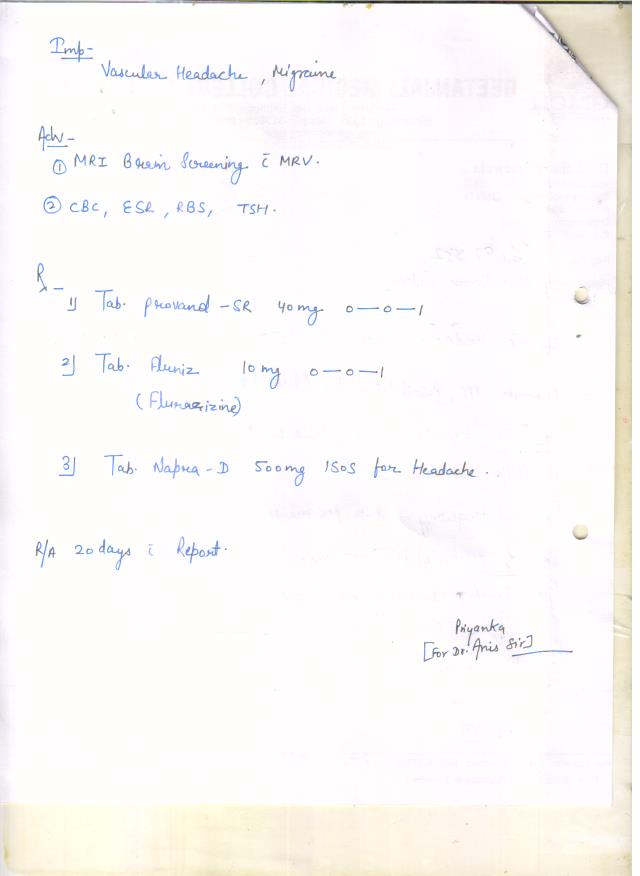 Imp-
Vascular Headache, Migraine
Adv-
① MRI Brain Screening c̄ MRV.
② CBC, ESR, RBS, TSH.
R -
1) Tab. Provand-SR 40mg 0-0-1
2) Tab. Fluniz 10mg 0-0-1
(Flunarizine)
3) Tab. Napra-D 500mg 1SOS for Headache.
R/A 20 days c̄ Report.
Priyanka
[For Dr. Anis Sir]